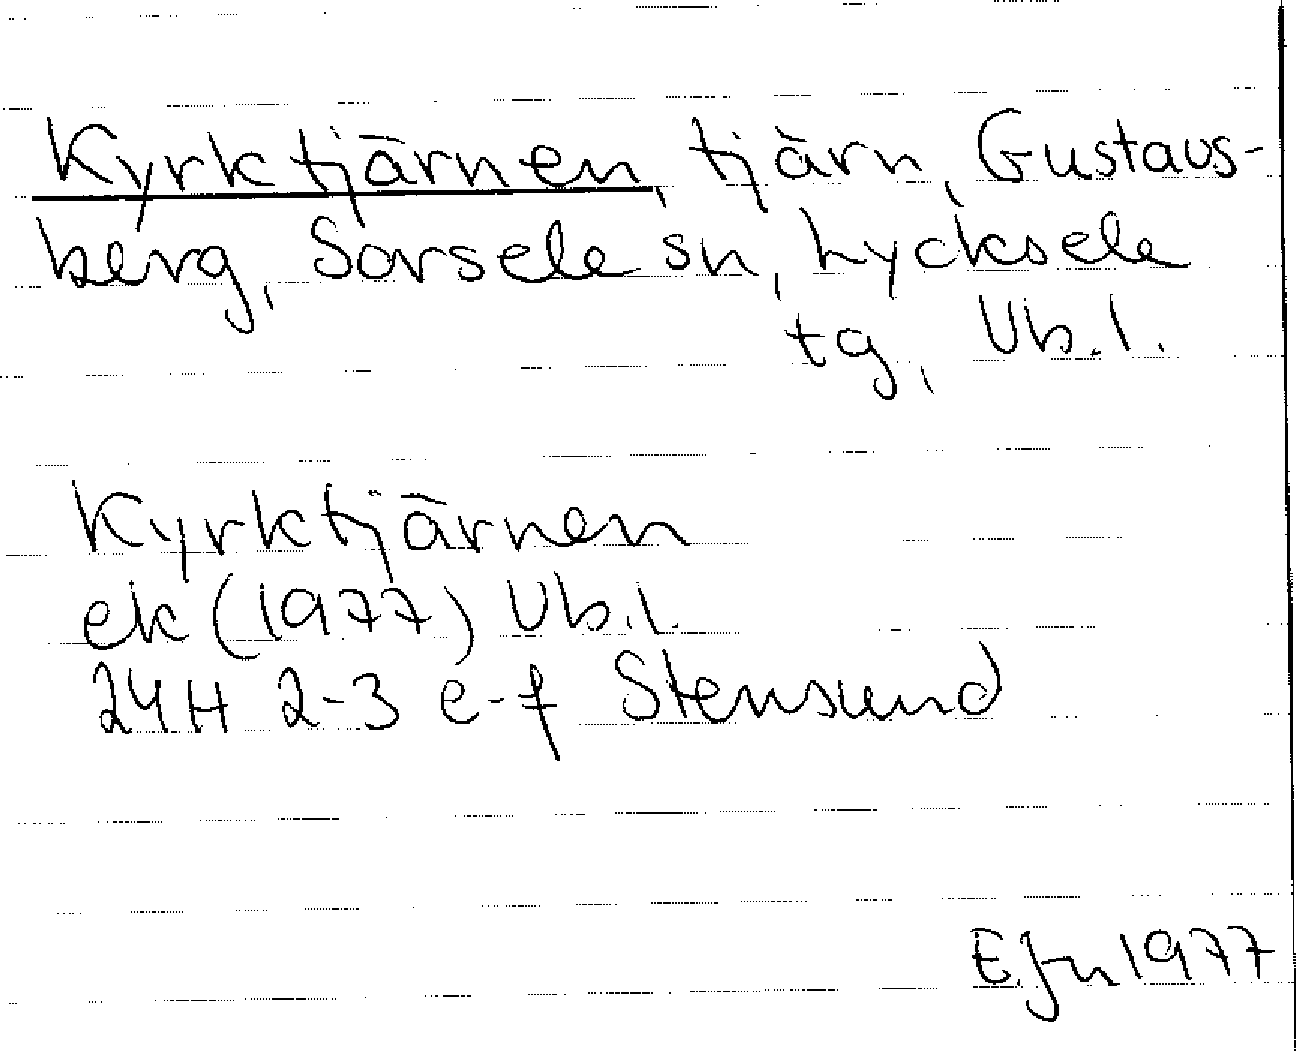 Kyrktjärnen, tjärn, Gustavs-
berg, Sorsele sn, Lycksele
tg, Vb.l.
Kyrktjärnen
ek (1977) Vb.l.
24H 2-3 e-f Stensund
E.Jn 1977